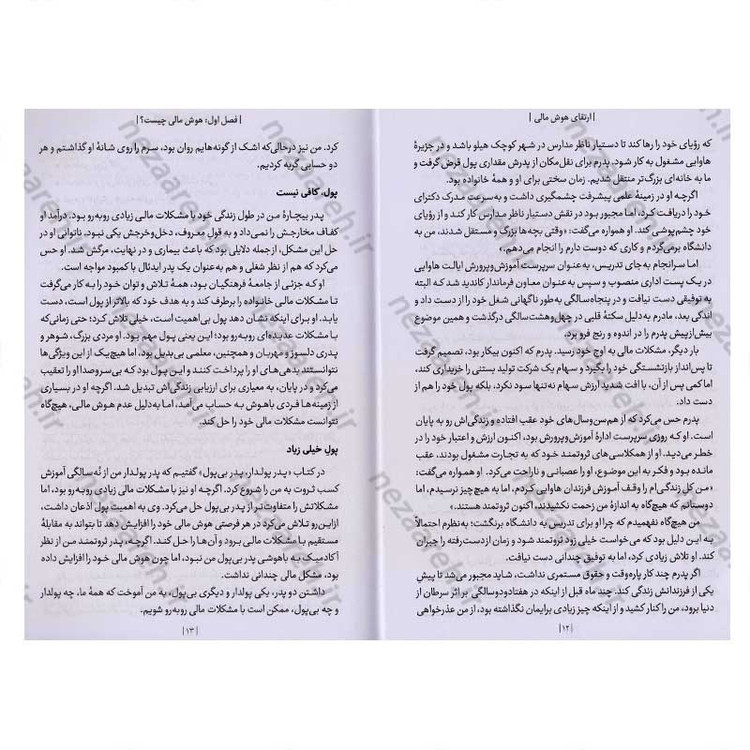 | ارتقای هوش مالی |
که رؤیای خود را رها کند تا دستیار ناظر مدارس در شهر کوچک هیلو باشد و در جزیرهٔ
هاوایی مشغول به کار شود. پدرم برای نقل‌مکان از پدرش مقداری پول قرض گرفت و
ما به خانه‌ای بزرگ‌تر منتقل شدیم. زمان سختی برای او و همهٔ خانواده بود.
اگرچه او در زمینهٔ علمی پیشرفت چشمگیری داشت و به‌سرعت مدرک دکترای
خود را دریافت کرد، اما مجبور بود در نقش دستیار ناظر مدارس کار کند و از رؤیای
خود چشم‌پوشی کند. او همواره می‌گفت: «وقتی بچه‌ها بزرگ و مستقل شدند، من به
دانشگاه برمی‌گردم و کاری که دوست دارم را انجام می‌دهم.»
اما سرانجام به‌جای تدریس، به‌عنوان سرپرست آموزش‌وپرورش ایالت هاوایی
در یک پست اداری منصوب و سپس به عنوان معاون فرماندار کاندید شد که البته
به توفیقی دست نیافت و در پنجاه‌سالگی به‌طور ناگهانی شغل خود را از دست داد و
اندکی بعد، مادرم به‌دلیل سکتهٔ قلبی در چهل‌وهشت‌سالگی درگذشت و همین موضوع
بیش‌ازپیش پدرم را در اندوه و رنج فرو برد.
بار دیگر، مشکلات مالی به اوج خود رسید. پدرم که اکنون بیکار بود، تصمیم گرفت
تا پس‌انداز بازنشستگی خود را بگیرد و سهام یک شرکت تولید بستنی را خریداری کند،
اما کمی پس از آن، با افت شدید ارزش سهام نه‌تنها سود نکرد، بلکه پول خود را هم از
دست داد.
پدرم حس می‌کرد که از هم‌سن‌وسال‌های خود عقب افتاده و زندگی‌اش رو به پایان
است. او که روزی سرپرست ادارهٔ آموزش‌وپرورش بود، اکنون ارزش و اعتبار خود را در
خطر می‌دید. او از همکلاسی‌های ثروتمند خود که به تجارت مشغول بودند، عقب
مانده بود و فکر به این موضوع، او را عصبانی و ناراحت می‌کرد. او همواره می‌گفت:
«من کل زندگی‌ام را وقف آموزش فرزندان هاوایی کردم، اما به هیچ‌چیز نرسیدم، اما
دوستانم که هیچ‌گاه به اندازهٔ من زحمت نکشیدند، اکنون ثروتمند هستند.»
من هیچ‌گاه نفهمیدم که چرا او برای تدریس به دانشگاه برنگشت؛ به‌نظرم احتمالاً
به این دلیل بود که می‌خواست خیلی زود ثروتمند شود و زمان ازدست‌رفته را جبران
کند. او تلاش زیادی کرد، اما به توفیق چندانی دست نیافت.
اگر پدرم چند کار پاره‌وقت و حقوق مستمری نداشت، شاید مجبور می‌شد تا پیش
یکی از فرزندانش زندگی کند. چند ماه قبل از اینکه در هفتادودوسالگی بر اثر سرطان از
دنیا برود، من را کنار کشید و از اینکه چیز زیادی برایمان نگذاشته بود، از من عذرخواهی
| ۱۲ |
| فصل اول: هوش مالی چیست؟ |
کرد. من نیز درحالی‌که اشک از گونه‌هایم روان بود، سرم را روی شانهٔ او گذاشتم و هر
دو حسابی گریه کردیم.
پول، کافی نیست
پدر بیچارهٔ من در طول زندگی خود با مشکلات مالی زیادی روبه‌رو بود. درآمد او
کفاف مخارجش را نمی‌داد و به قول معروف، دخل‌وخرجش یکی نبود. ناتوانی او در
حل این مشکل، ازجمله دلایلی بود که باعث بیماری و در نهایت، مرگش شد. او حس
می‌کرد که هم از نظر شغلی و هم به‌عنوان یک پدر ایدئال با کمبود مواجه است.
او که جزئی از جامعهٔ فرهنگیان بود، همهٔ تلاش و توان خود را به کار می‌گرفت
تا مشکلات مالی خانواده را برطرف کند و به هدف خود که بالاتر از پول است، دست
یابد. او برای اینکه نشان دهد پول بی‌اهمیت است، خیلی تلاش کرد؛ حتی زمانی‌که
با مشکلات عدیده‌ای روبه‌رو بود؛ این یعنی پول مهم بود. او مردی بزرگ، شوهر و
پدری دلسوز و مهربان و همچنین، معلمی بی‌بدیل بود، اما هیچ‌یک از این ویژگی‌ها
نتوانستند بدهی‌های او را پرداخت کنند و این پول بود که بی‌سروصدا او را تعقیب
می‌کرد و در پایان، به معیاری برای ارزیابی زندگی‌اش تبدیل شد. اگرچه او در بسیاری
از زمینه‌ها فردی باهوش به حساب می‌آمد، اما به‌دلیل عدم هوش مالی، هیچ‌گاه
نتوانست مشکلات مالی خود را حل کند.
پول خیلی زیاد
در کتاب «پدر پولدار، پدر بی‌پول» گفتیم که پدر پولدار من از نُه‌سالگی آموزش
کسب ثروت به من را شروع کرد. اگرچه او نیز با مشکلات مالی زیادی روبه‌رو بود، اما
مشکلاتش را متفاوت‌تر از پدر بی‌پول حل می‌کرد. وی به اهمیت پول اذعان داشت،
ازاین‌رو تلاش می‌کرد در هر فرصتی هوش مالی خود را افزایش دهد تا بتواند به مقابلهٔ
مستقیم با مشکلات مالی برود و آن‌ها را حل کند. اگرچه، پدر ثروتمند من از نظر
آکادمیک به باهوشی پدر بی‌پول من نبود، اما چون هوش مالی خود را افزایش داده
بود، مشکل مالی چندانی نداشت.
داشتن دو پدر، یکی پولدار و دیگری بی‌پول، به من آموخت که همهٔ ما، چه پولدار
و چه بی‌پول، ممکن است با مشکلات مالی روبه‌رو شویم.
| ۱۳ |
nezaareh.ir